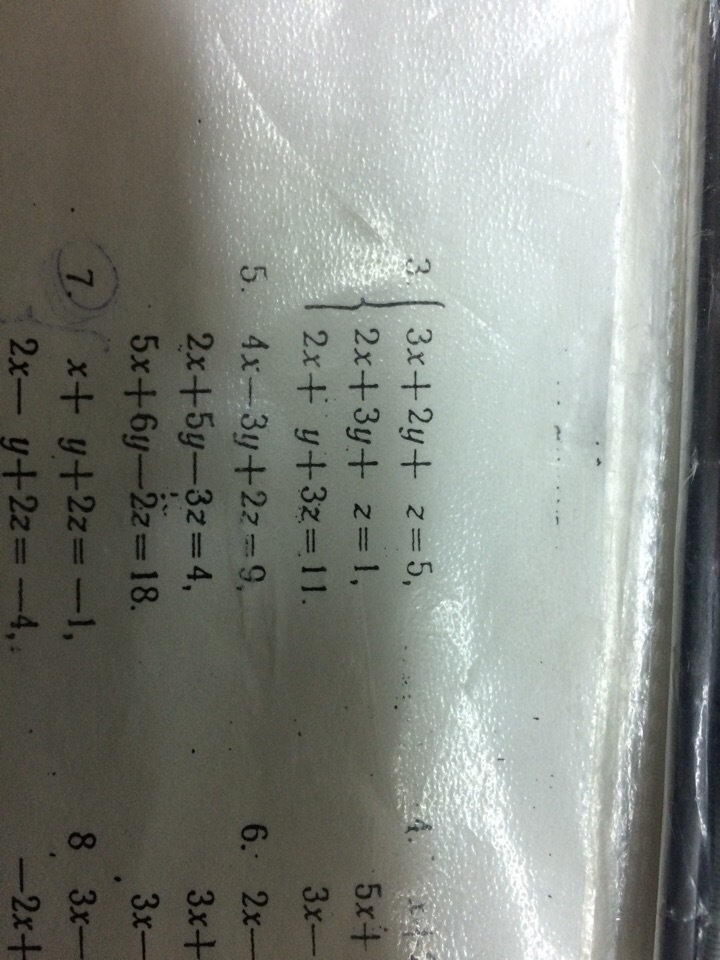 3. 3x+2y+ z=5,
2x+3y+ z=1,
2x+ y+3z=11.
4. x+
5x+
3x—
5. 4x—3y+2z=9,
2x+5y—3z=4,
5x+6y—2z=18.
6. 2x—
3x+
3x—
7. x+ y+2z=—1,
2x— y+2z=—4,
8 3x—
—2x+